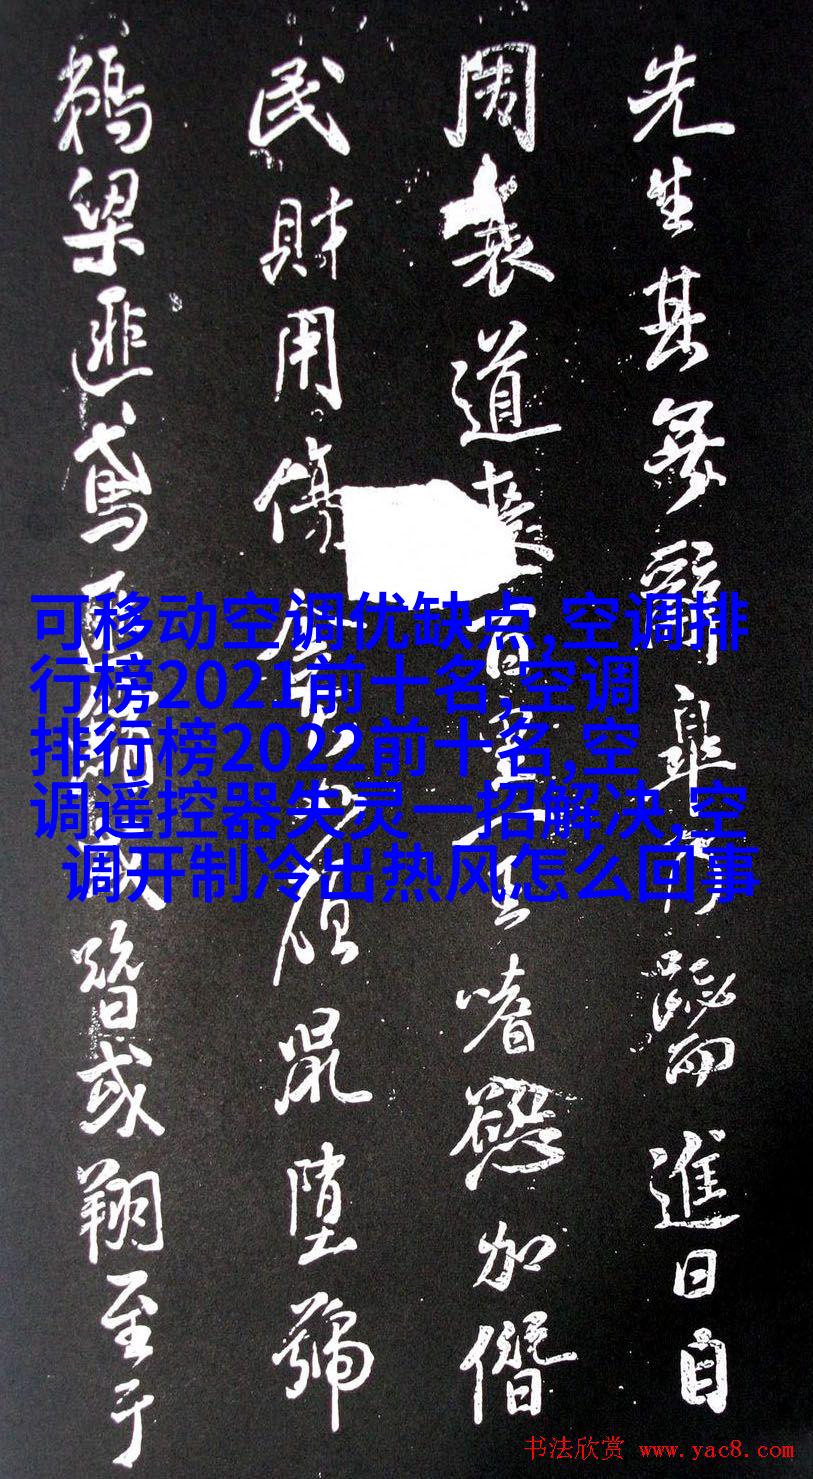 先生其無辭皋
進日自
周衰道喪百王
嗜慾加僭
民財用傷
鼠堕號
鵜梁匪
鳶匪鶉
或翔至于
可移动空调优缺点,空调排
行榜2021前十名,空调
排行榜2022前十名,空
调遥控器失灵一招解决,空
调开制冷出热风怎么回事
书法欣赏 www.yac8.com